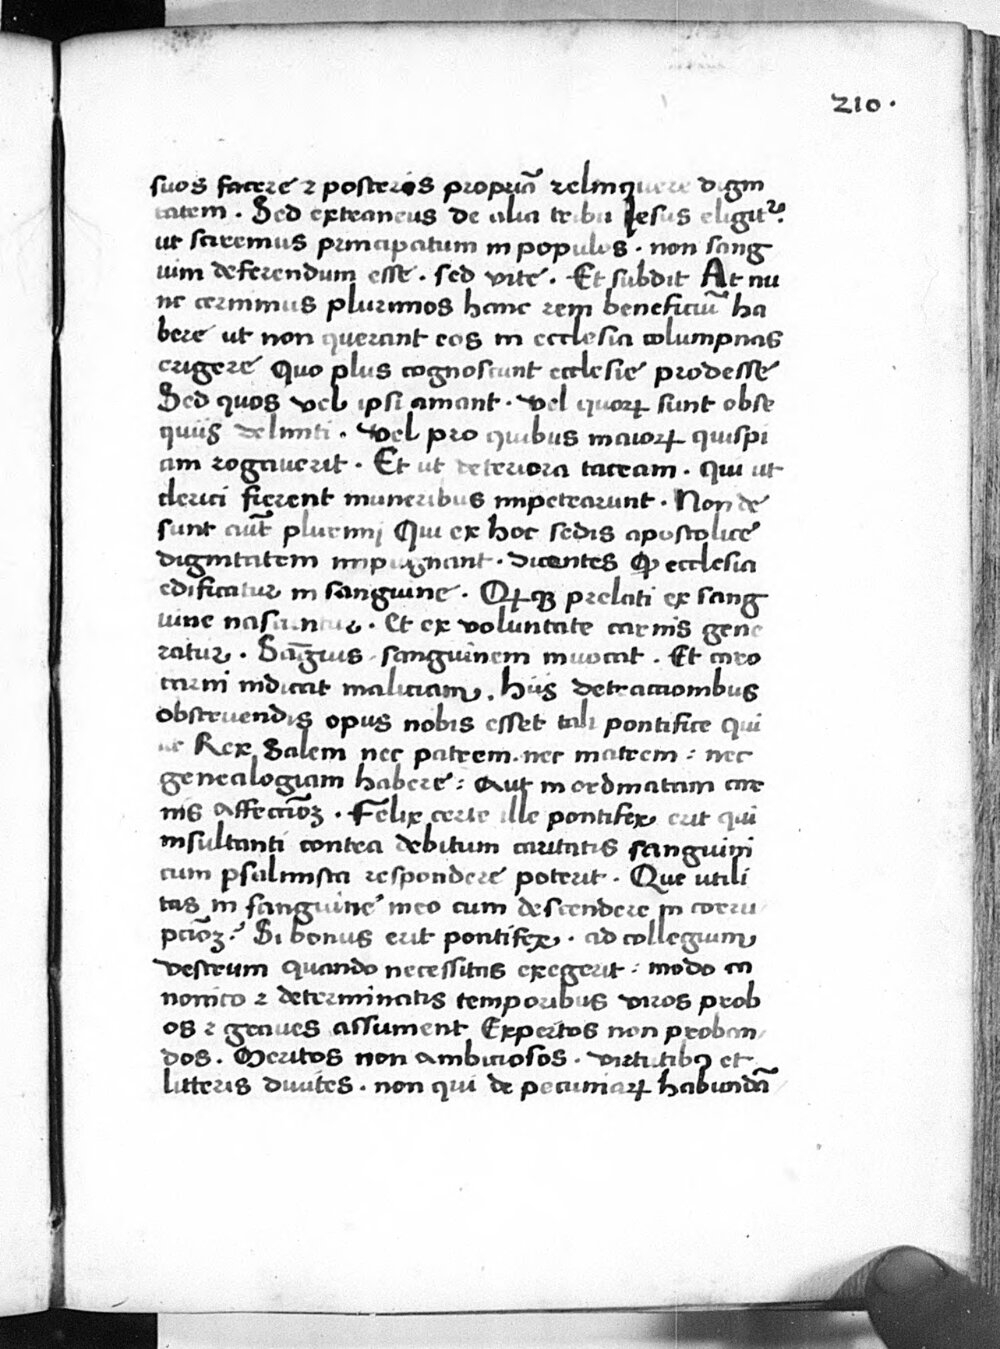 210.
suos facere ⁊ posteris propriā relinquere digni
tatem . Sed extraneus de alia tribu Jesus eligitur.
ut sciremus principatum in populos . non sang
uini deferendum esse . sed vite . Et subdit At nu
nc cernimus plurimos hanc rem beneficiū ha
bere ut non querant eos in ecclesia columpnas
erigere Quo plus cognoscunt ecclesie prodesse
Sed quos vel ipsi amant . vel quorꝝ sunt obse
quiis deliniti . vel pro quibus maiorꝝ quispi
am rogauerit . Et ut deteriora taceam . qui ut
clerici fierent muneribus impetrarunt . Non de
sunt aut̄ plurimi Qui ex hoc sedis apostolice
dignitatem impugnant . dicentes Ꝙ ecclesia
edificatur in sanguine . prelati ex sang
uine nascuntur . Et ex voluntate carnis gene
ratur . Sāguis sanguinem inuocat . Et caro
carni indicat maliciam . hiis detractionibus
obstruendis opus nobis esset tali pontifice qui
ut Rex Salem nec patrem . nec matrem : nec
genealogiam habere : Aut inordinatam car
nis affectiōꝫ . Felix certe ille pontifex erit qui
insultanti contra debitum caritatis sanguini
cum psalmista respondere poterit . Que utili
tas in sanguine meo cum descendere in corru
pciōꝫ ? Si bonus erit pontifex . ad collegium
vestrum quando necessitas exegerit : modo ca
nonico ⁊ determinatis temporibus viros prob
os ⁊ graues assument Expertos non proban
dos . Meritos non ambiciosos . virtutibꝰ et
litteris diuites . non qui de pecuniarꝝ habundā